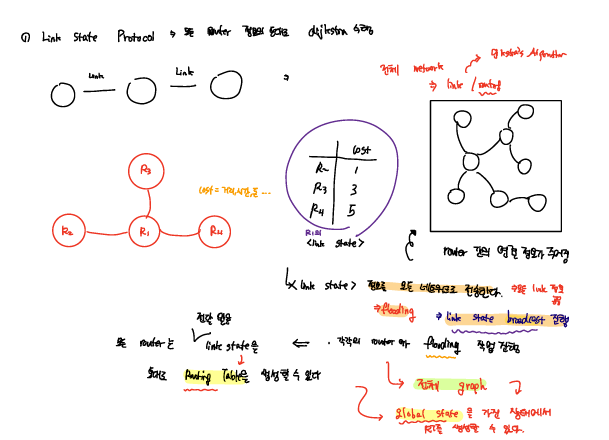 ① Link State Protocol → 모든 router 정보의 토대로 dijkstra 수행
Link
Link
⇒
전체 network
⇒ link / routing
Dijkstra's Algorithm
R3
R2
R1
R4
cost = 거리, 시간, 등 ...
cost
R2 1
R3 3
R4 5
R1의
<link state>
router 간의 연결 정보가 주어짐
<link state> 정보를 모든 네트워크로 전송한다.
⇒ 모든 link 정보
⇒ flooding
⇒ link state broadcast 진행
전달 받은
모든 router는 link state을 ⇐ · 각각의 router 마다 flooding 작업 진행
토대로 Routing Table을 생성할 수 있다
→ 전체 graph
→ Global state 을 가진 상태에서
RT를 생성할 수 있다.